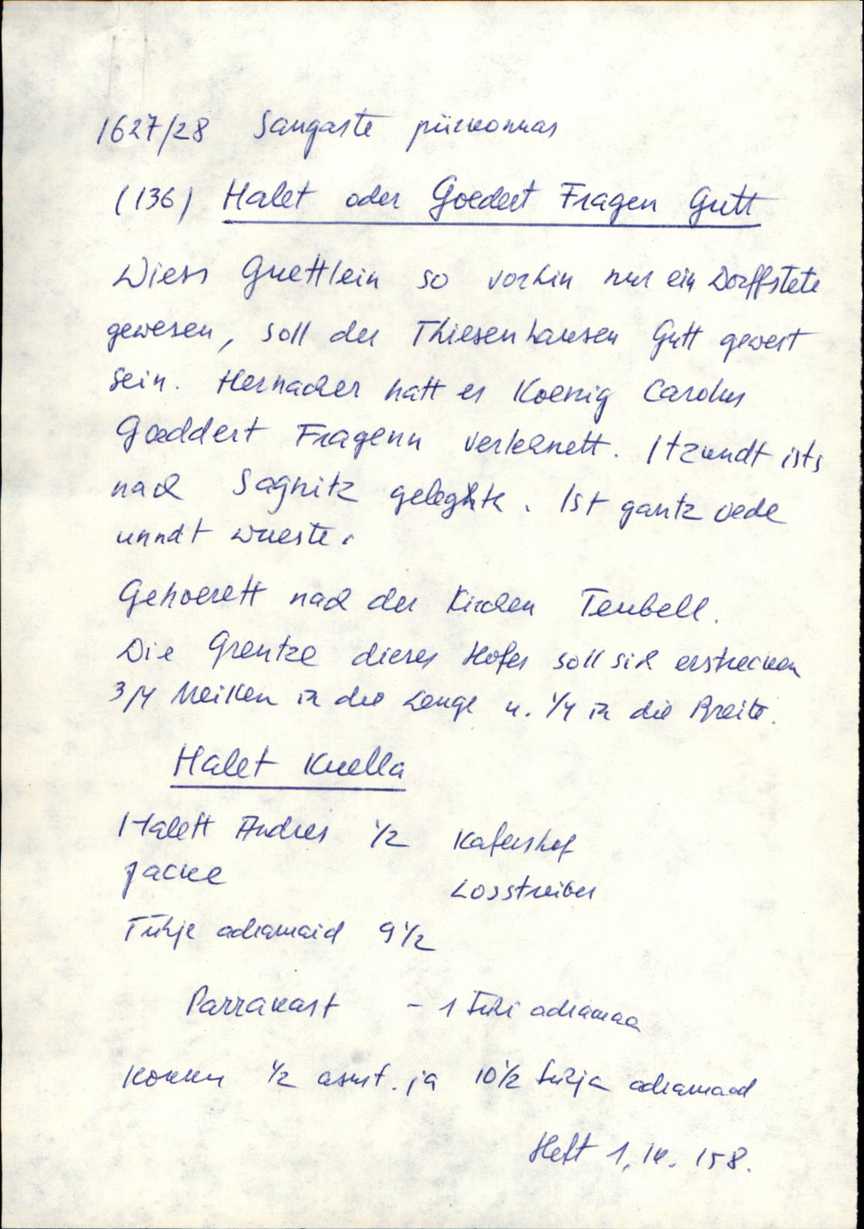 1627/28 Sangaste piirkonnas
(136) Halet oder Goedert Fragen Gutt
Diess Guettlein so vorhin nur ein Dorffstete
gewesen, soll der Thiesenhausen Gutt gewest
sein. Hernacher hatt es Koenig Carolus
Goeddert Fragenn verlehnett. Itzundt ists
nach Sagnitz geleghtt. Ist gantz oede
unndt wueste.
Gehoerett nach der Kirchen Teubell.
Die Grentze dieses Hofes soll sich erstrecken
3/4 Meilen in die Lenge u. 1/4 in die Breite.
Halet Kuella
Halett Andres 1/2 Kafershof
Jacke Losstreiber
Tühje adramaid 9 1/2
Parrakast - 1 tühi adramaa
Kokku 1/2 asust. ja 10 1/2 tühja adramaad
Heft 1, lk. 158.